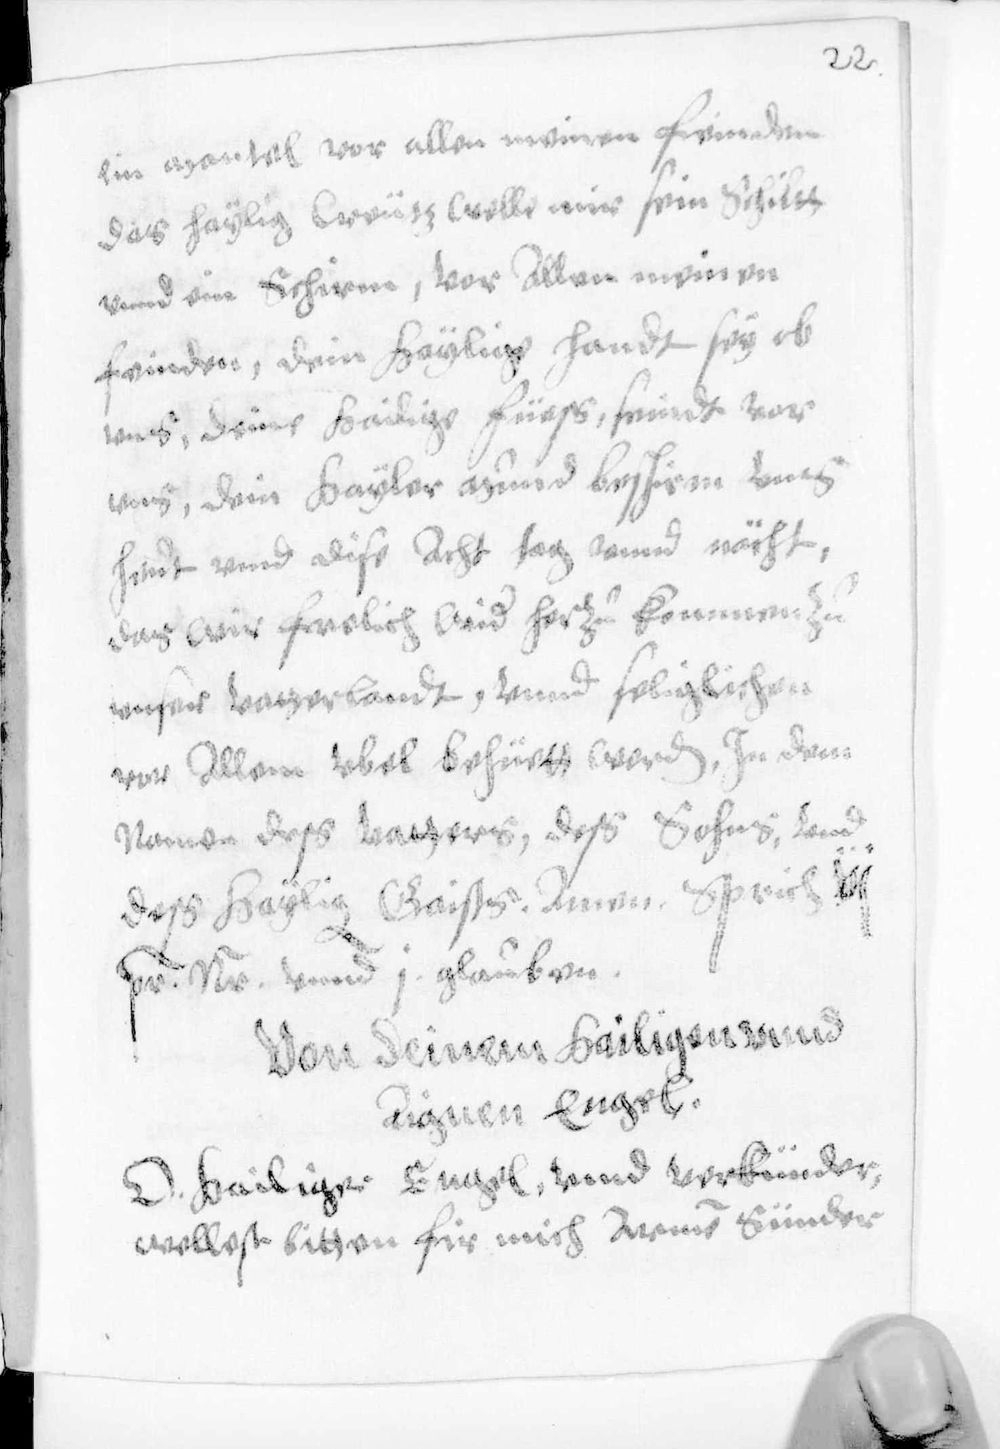 22.
ein mantel vor allen meinen feinden
das haÿlig Creütz welle mir sein Schiltt
vnnd ein Schirm, vor Allen meinen
feinden, dein Haÿlige handt seÿ ob
vns, deine Hailige füess, seindt vor
vns, dein Hayler mund beschirm vns
heüt vnnd dise Acht tag vnnd nächt,
das wir frelich wid herzu kommen zu
vnser vatterlandt, vnnd seliglichen
vor Allem vbel behüett werd, In dem
Namen dess vatters, dess Sohns, vnd
dess Haÿlig Gaists. Amen. Sprich iij
pr. Nr. vnnd j. glauben.
Von deinem Hailigen vnnd
Aignen Engel.
O. Hailiger Engel, vnnd verkünder,
wellest bitten fir mich Arme Sünder